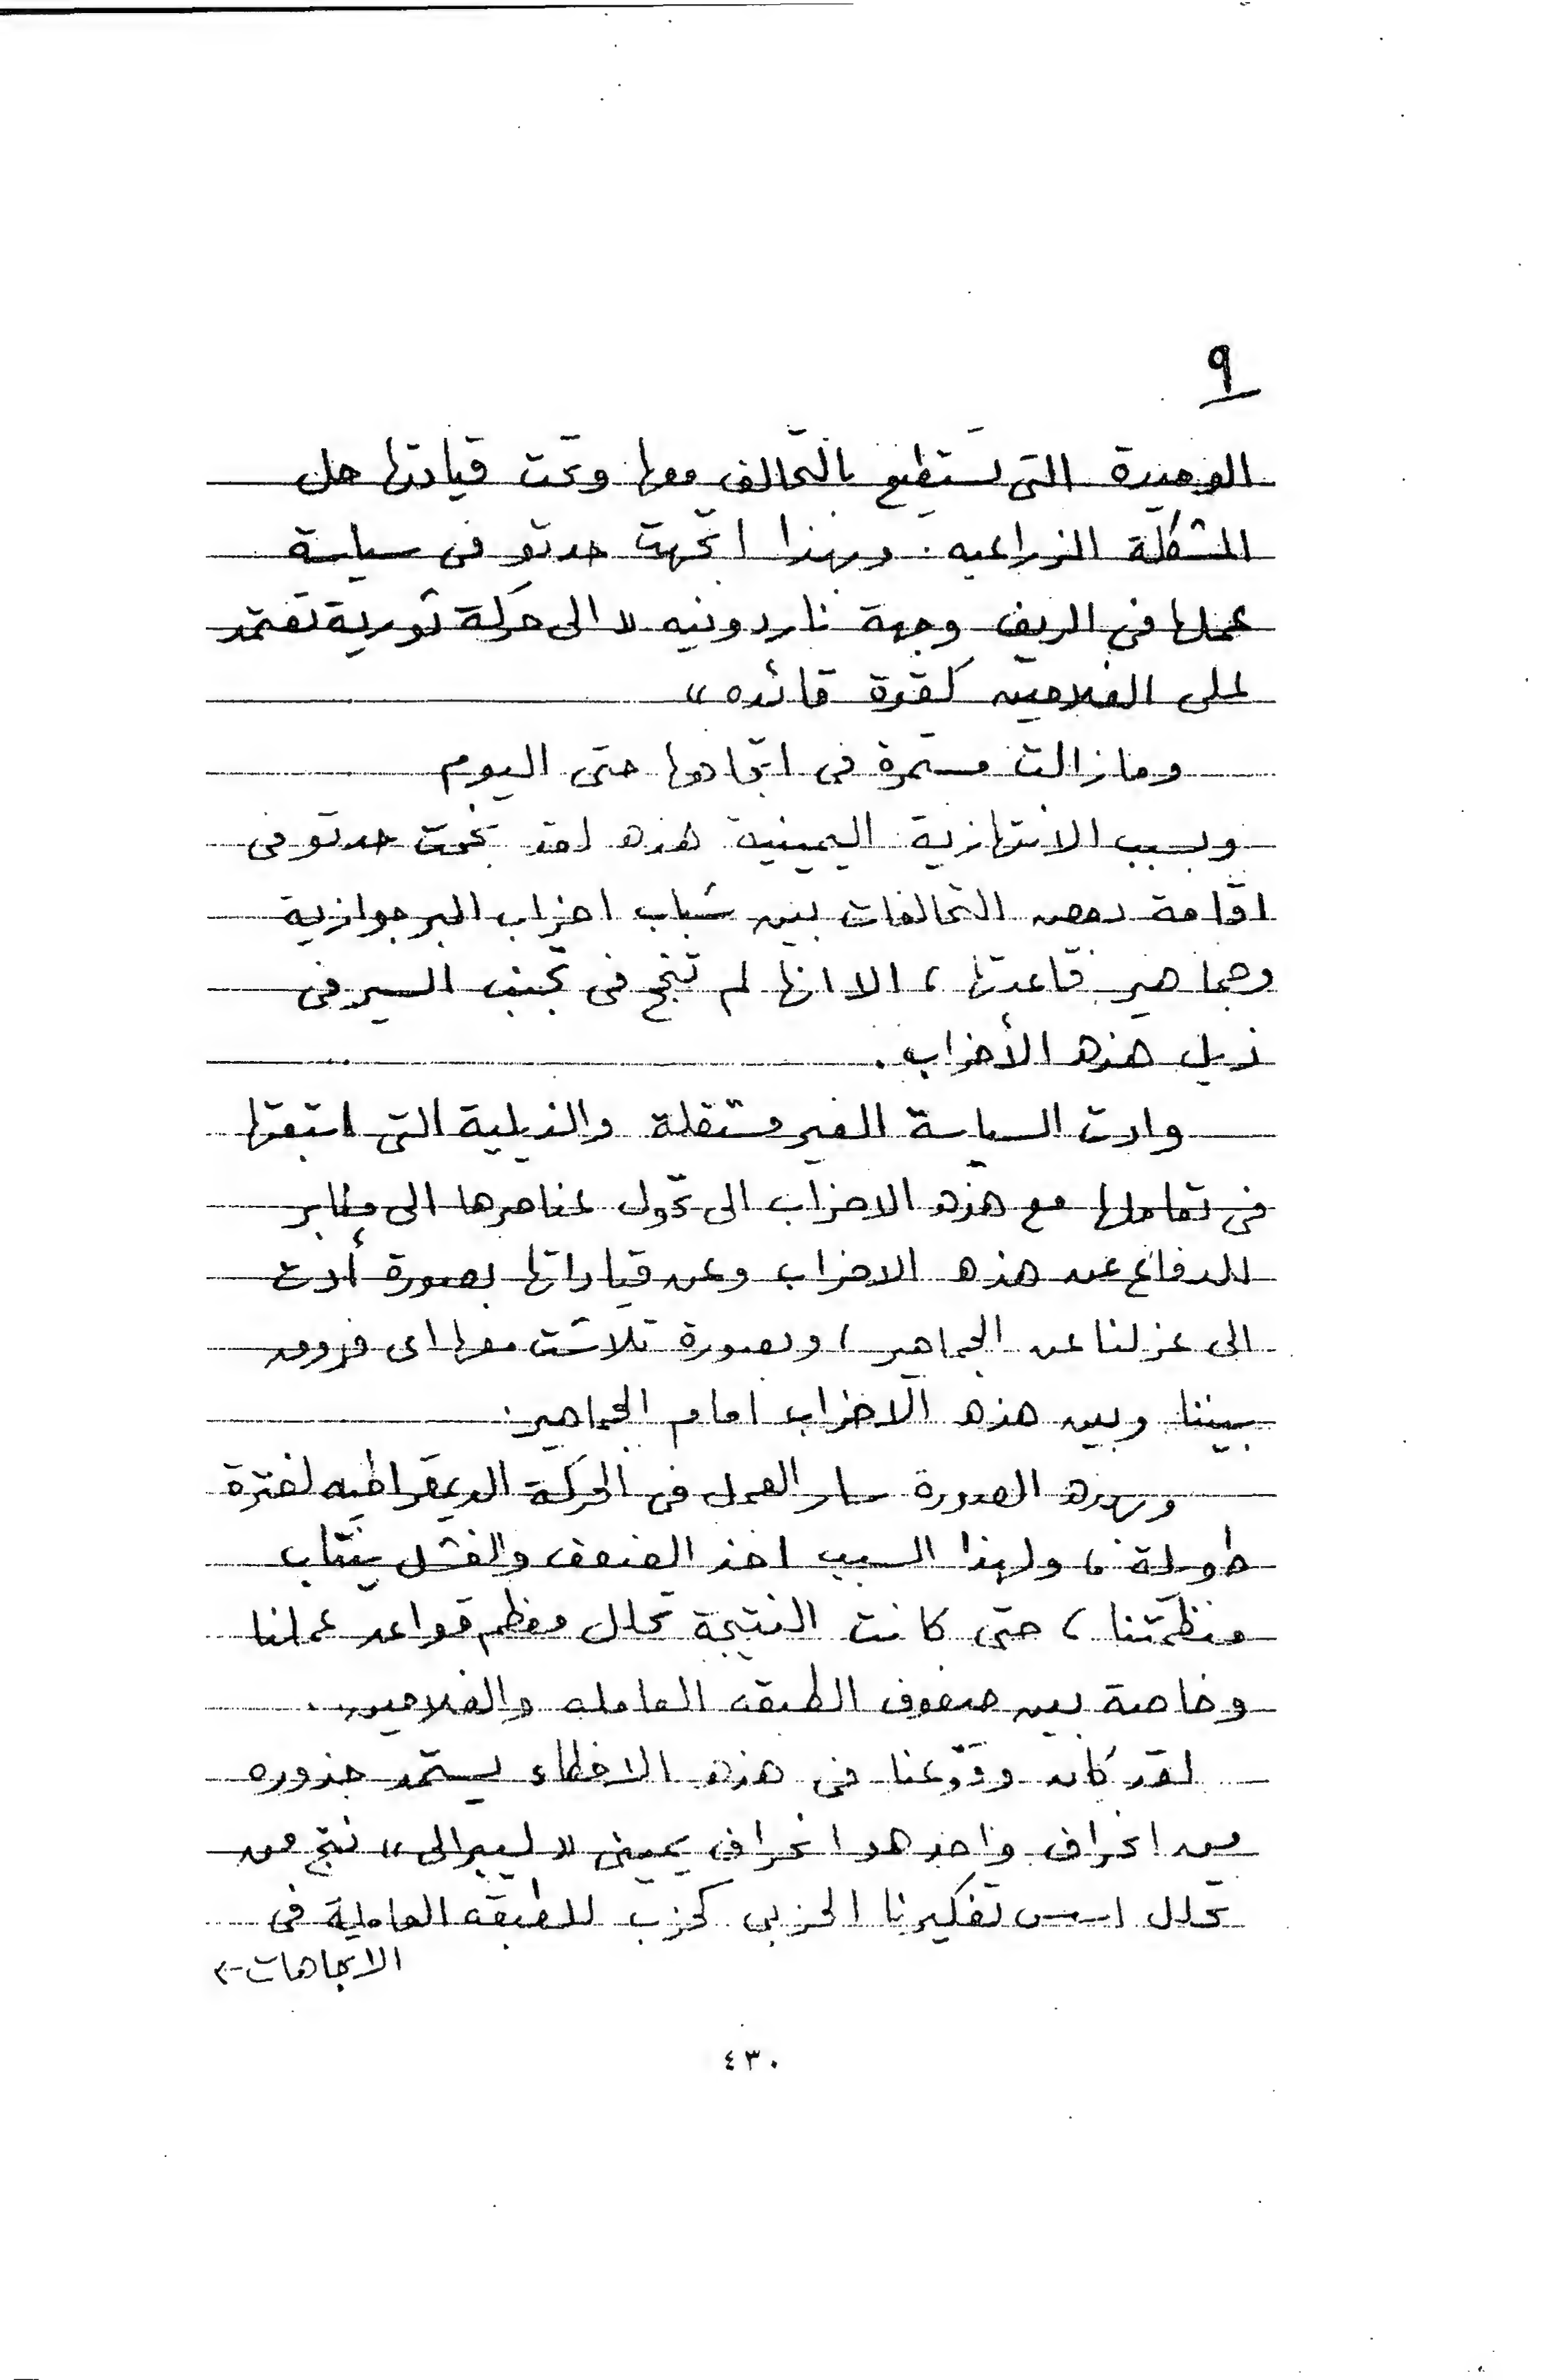 ٩
الوحيدة التى تستطيع بالتحالف معها وتحت قيادتها حل
المشكلة الزراعيه . وبهذا اتجهت حدتو فى سياسة
عملها فى الريف وجهة ناردونيه « الى حركة ثورية تعتمد
على الفلاحين كقوة قائده »
ومازالت مستمرة فى اتجاهها حتى اليوم
وبسبب الانتهازية اليمينية هذه لقد نجحت حدتو فى
اقامة بعض التحالفات بين شباب احزاب البرجوازية
وجماهير قاعدتها ، الا انها لم تنجح فى تجنب السير فى
ذيل هذه الأحزاب .
وادت السياسة الغير مستقلة والذيلية التى اتبعتها
فى تعاملها مع هذه الاحزاب الى تحول عناصرها الى منابر
للدفاع عن هذه الاحزاب وعن قياداتها بصورة أدت
الى عزلنا عن الجماهير ، وبصورة تلاشت معها اى فروق
بيننا وبين هذه الاحزاب امام الجماهير .
وبهذه الصورة سار العمل فى الحركة الديمقراطيه لفترة
طويلة ، ولهذا السبب اخذ الضعف والفشل ينتاب
منظمتنا ، حتى كانت النتيجة تحلل معظم قواعد عملنا
وخاصة بين صفوف الطبقه العامله والفلاحين .
لقد كان وقوعنا فى هذه الاخطاء يستمد جذوره
من انحراف واحد هو انحراف يمينى « ليبرالى » نتج من
تحلل اسس تفكيرنا الحزبى كحزب للطبقه العاملة فى
الاتجاهات -
٤٣٠